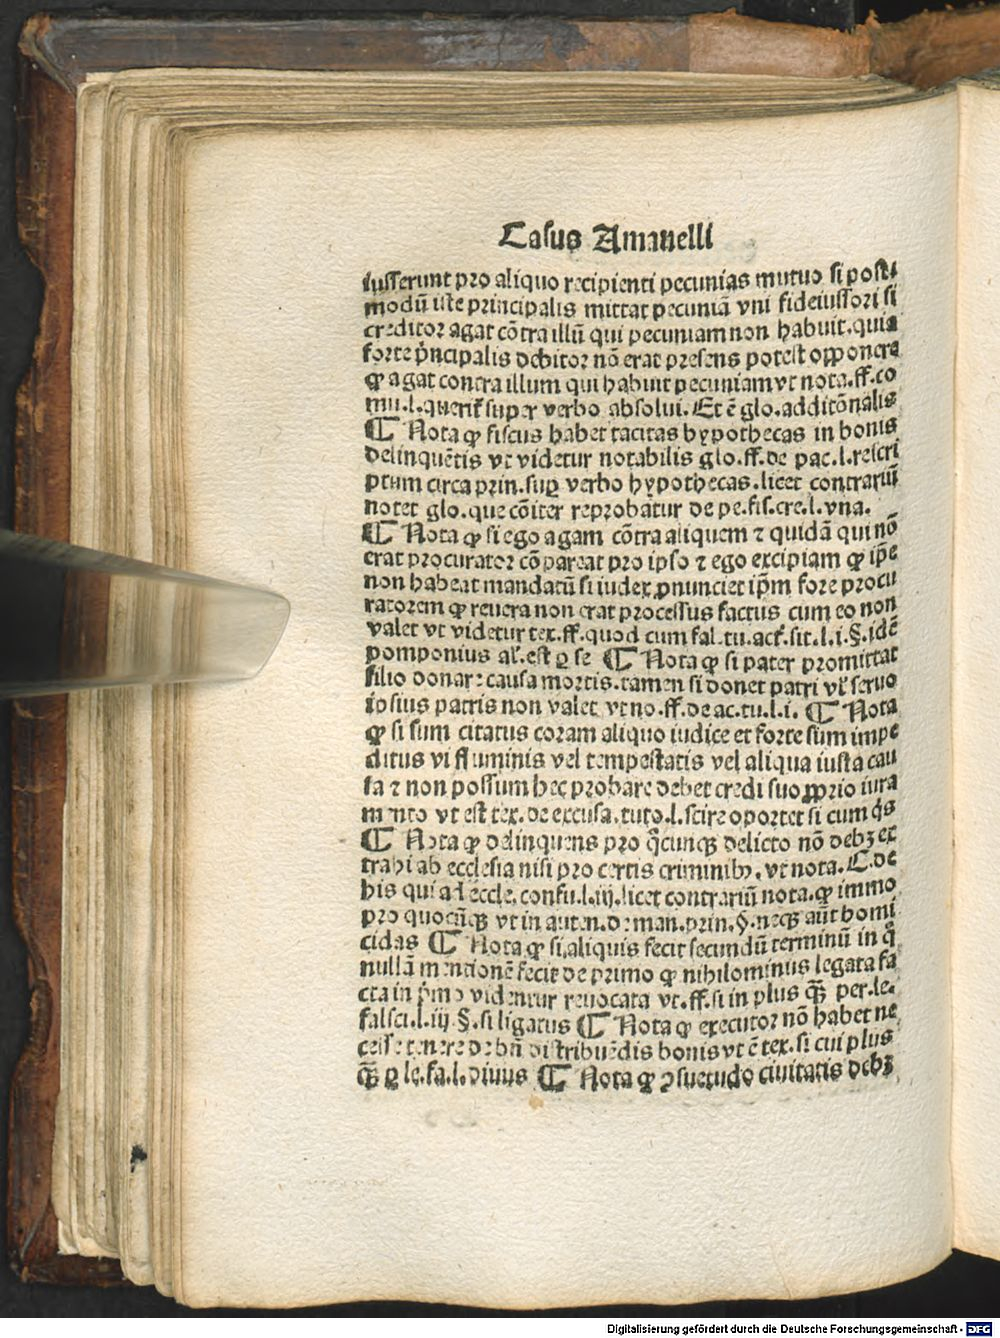 Casus Amanelli
iusserunt pro aliquo recipienti pecunias mutuo si post
modū iste principalis mittat pecuniā vni fideiussori si
creditor agat cōtra illū qui pecuniam non habuit. quia
forte p̄ncipalis debitor nō erat presens potest opponere
ꝙ agat contra illum qui habuit pecuniam vt nota. ff. co
mu. l. querit̄ super verbo absolui. Et ē glo. additōnalis
¶ Nota ꝙ fiscus habet tacitas hypothecas in bonis
delinquētis vt videtur notabilis glo. ff. de pac. l. rescri
ptum circa prin. suꝑ verbo hypothecas. licet contrariū
notet glo. que cōiter reprobatur de pe. fis. cre. l. vna.
¶ Nota ꝙ si ego agam cōtra aliquem ⁊ quidā qui nō
erat procurator cōpareat pro ipso ⁊ ego excipiam ꝙ ip̄e
non habeat mandatū si iudex ꝓnunciet ip̄m fore procu
ratorem ꝙ reuera non erat processus factus cum eo non
valet vt videtur tex. ff. quod cum fal. tu. act̄. sit. l. i. §. idē
pomponius al̄. est ꝑ se ¶ Nota ꝙ si pater promittat
filio donare causa mortis. tamen si donet patri vl̄ seruo
ipsius patris non valet vt no. ff. de ac. tu. l. i. ¶ Nota
ꝙ si sum citatus coram aliquo iudice et forte sum impe
ditus vi fluminis vel tempestatis vel aliqua iusta cau
sa ⁊ non possum hec probare debet credi suo ꝓprio iura
mento vt est tex. de excusa. tuto. l. scire oportet si cum q̄s
¶ Nota ꝙ delinquens pro q̄cunqꝫ delicto nō debꝫ ex
trahi ab ecclesia nisi pro certis criminibꝰ. vt nota. C. de
his qui ad eccle. confu. l. iij. licet contrariū nota. ꝙ immo
pro quocūqꝫ vt in auten. de man. prin. §. neqꝫ aūt homi
cidas ¶ Nota ꝙ si aliquis fecit secundū terminū in q̄
nullā mentionē fecit de primo ꝙ nihilominus legata fa
cta in p̄mo videntur reuocata vt. ff. si in plus qꝫ̄ per. le.
falsci. l. iij §. si ligatus ¶ Nota ꝙ executor nō habet ne
cesse tenere de hn̄ distribuēdis bonis vt ē tex. si cui plus
qꝫ̄ ꝑ le. fa. l. diuus ¶ Nota ꝙ ↄsuetudo ciuitatis debꝫ
Digitalisierung gefördert durch die Deutsche Forschungsgemeinschaft - DFG